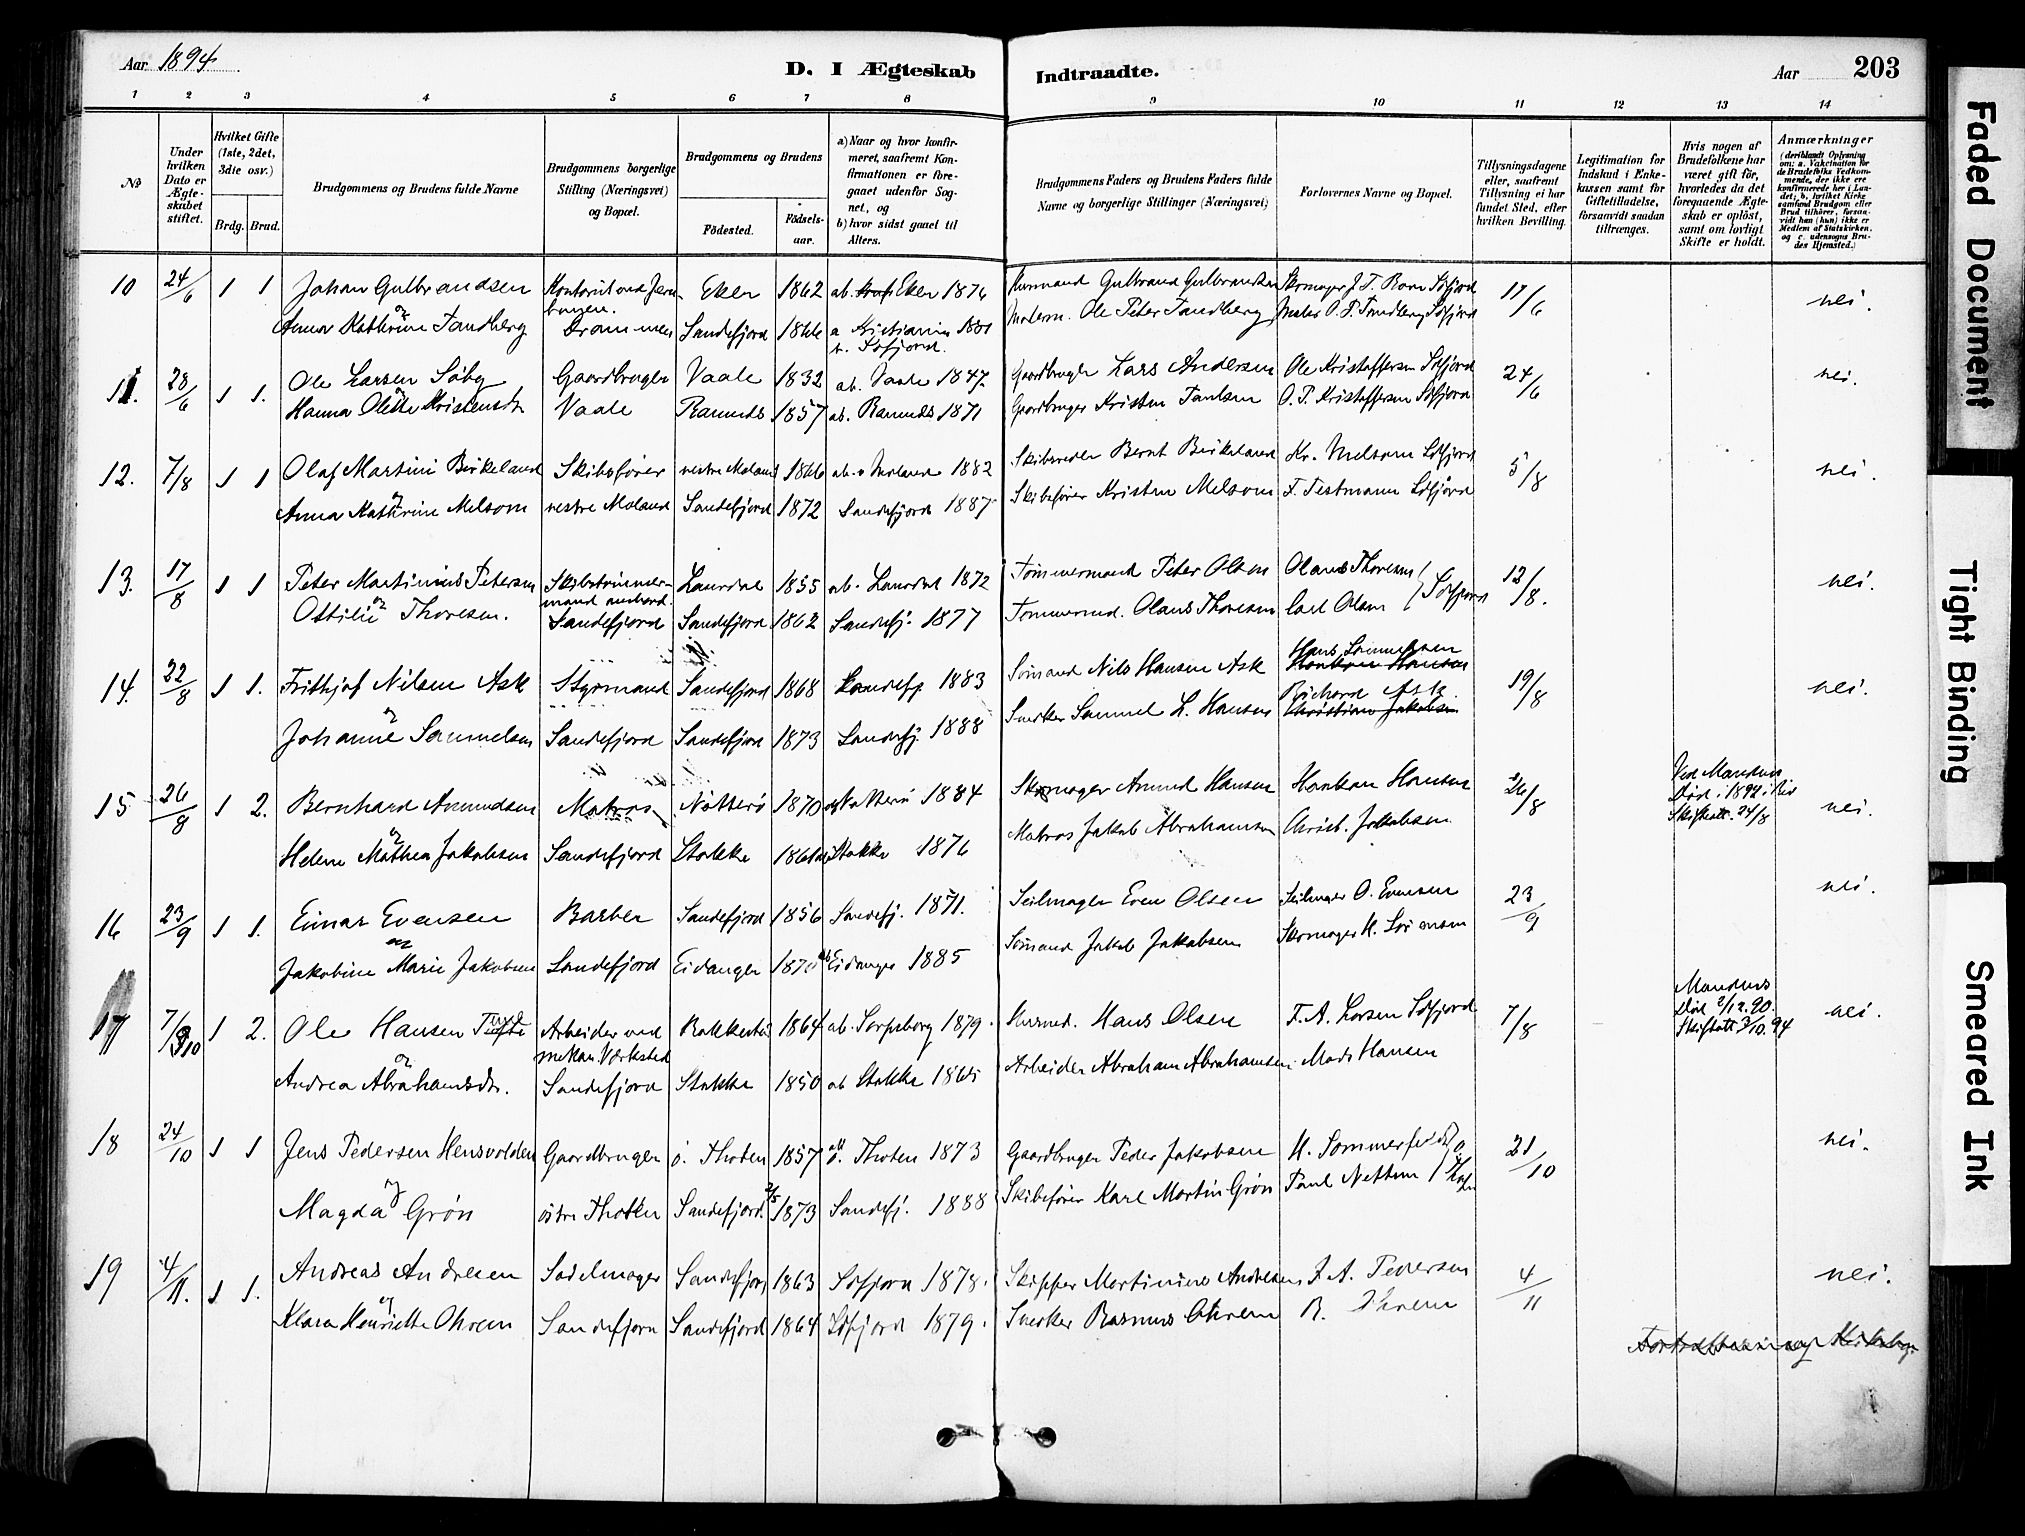 Aar 1894
D. I Ægteskab Indtraadte.
Aar 203
1 2 3 4 5 6 7 8 9 10 11 12 13 14
No
Under hvilken Dato er Ægteskabet stiftet.
Hvilket Gifte (1ste, 2det, 3die osv.)
Brdg. Brud.
Brudgommens og Brudens fulde Navne
Brudgommens borgerlige Stilling (Næringsvei) og Bopæl.
Brudgommens og Brudens
Födested.
Födsels-aar.
a) Naar og hvor konfirmeret, saafremt Konfirmationen er foregaaet udenfor Sognet, og
b) hvor sidst gaaet til Alters.
Brudgommens Faders og Brudens Faders fulde Navne og borgerlige Stillinger (Næringsvei)
Forlovernes Navne og Bopæl.
Tillysningsdagene eller, saafremt Tillysning ei har fundet Sted, efter hvilken Bevilling.
Legitimation for Indskud i Enkekassen samt for Giftetilladelse, forsaavidt saadan tiltrænges.
Hvis nogen af Brudefolkene har været gift för, hvorledes da det foregaaende Ægteskab er oplöst, samt om lovligt Skifte er holdt.
Anmærkninger
(deriblandt Oplysning om: a. Vakcination for de Brudefolks Vedkommende, der ikke ere konfirmerede her i Landet; b. hvilket Kirkesamfund Brudgom eller Brud tilhörer, forsaavidt han (hun) ikke er Medlem af Statskirken, og c. udensogns Brudes Hjemsted.)
10 24/6 1 1. Johan Gulbrandsen Eker 1862 ab. Eker 1876 Husmand Gulbrand Gulbrandsen Skomager 17/6 nei.
og
Anna Kathrine Tandberg Drammen Sandefjord 1866 a Kristiania b. Sdfjord. Malerm. Ole Peter Tandberg Maler O. T. Tandberg Sdfjord
11. 28/6 1 1. Ole Larsen Søby Gaardbruger Vaale 1832 ab. Vaale 1847 Gaardbruger Lars Andersen Ole Kristoffersen Sdfjord 24/6 nei.
og
Hanna Olette Kristensdtr Vaale Ramnes 1857 ab. Ramnes 1871 Gaardbruger Kristen Paulsen O. P. Kristoffersen Sdfjord
12. 7/8 1 1 Olaf Martini Birkeland Skibsfører vestre Moland 1866 ab. v Moland 1882 Skibsreder Bernt Birkeland Kr. Melsom Sdfjord 5/8 nei.
og
Anna Kathrine Melsom vestre Moland Sandefjord 1872 Sandefjord 1887 Skibsfører Kristen Melsom F. Testmann Sdfjord
13. 17/8 1 1 Peter Martinius Petersen Skibstømmermand Laurdal 1855 ab. Laurdal 1872 Tømmermand Peter Olsen Olaus Thoresen 12/8. nei.
og
Ottilie Thoresen. Sandefjord Sandefjord 1862 Sandefj. 1877 Tømmermd. Olaus Thoresen Carl Olsen Sdfjord
14. 22/8 1 1. Frithjof Nilsen Ask Styrmand Sandefjord 1868 Sandefj. 1883 Sømand Nils Hansen Ask Hans Samuelsen Haakon Hansen 19/8 nei.
og
Johanne Samuelsen Sandefjord Sandefjord 1873 Sandefj. 1888 Snedker Samuel L. Hansen Richard Ask. Christian Jakobsen
15 26/8 1 2. Bernhard Amundsen Matros Nøtterø 1870 Nøtterø 1884 Skomager Amund Hansen Haakon Hansen 26/8 Ved Mandens Død i 1892 Skifteatt. 24/8 nei.
og
Helene Mathea Jakobsen Sandefjord Stokke Stokke 1876 Matros Jakob Abrahamsen Christ. Jakobsen
16 23/9 1 1. Einar Evensen Barber Sandefjord 1856 Sandefj. 1871. Seilmager Even Olsen Seilmager O. Evensen 23/9 nei.
og
Jakobine Marie Jakobsen Sandefjord Eidanger Eidanger 1885 Sømand Jakob Jakobsen Skomager H. Sørensen
17 7/10 1 2. Ole Hansen Arbeider ved mekan. Værksted Rakkestad 1864 ab. Sarpsborg 1879. Husmd. Hans Olsen F. A. Larsen Sdfjord 7/8 Mandens Død 2/12 90. Skifteatt 3/10. 94 nei.
og
Andrea Abrahamsdtr. Sandefjord Stokke 1850 ab Stokke 1865 Arbeider Abraham Abrahamsen Mads Hansen
18 24/10 1 1 Jens Pedersen Hensvolden Gaardbruger ö. Thoten 1857 ab ö. Thoten 1873 Gaardbruger Peder Jakobsen H. Sommerfeldt 21/10 nei.
og
Magda Grøn østre Thoten Sandefjord. 2/5 1873 Sandefj. 1888 Skibsfører Karl Martin Grøn Paul Nettum ö Thoten
19 4/11. 1 1. Andreas Andresen Sadelmager Sandefjord 1863 Sdfjord 1878. Skipper Martinius Andresen J. A. Pedersen 4/11 nei.
og
Klara Henriette Ohrem Sandefjord Sandefjord 1864 Sdfjord 1879. Snedker Rasmus Ohrem R. Ohrem
Faded Document
Tight Binding
Smeared Ink